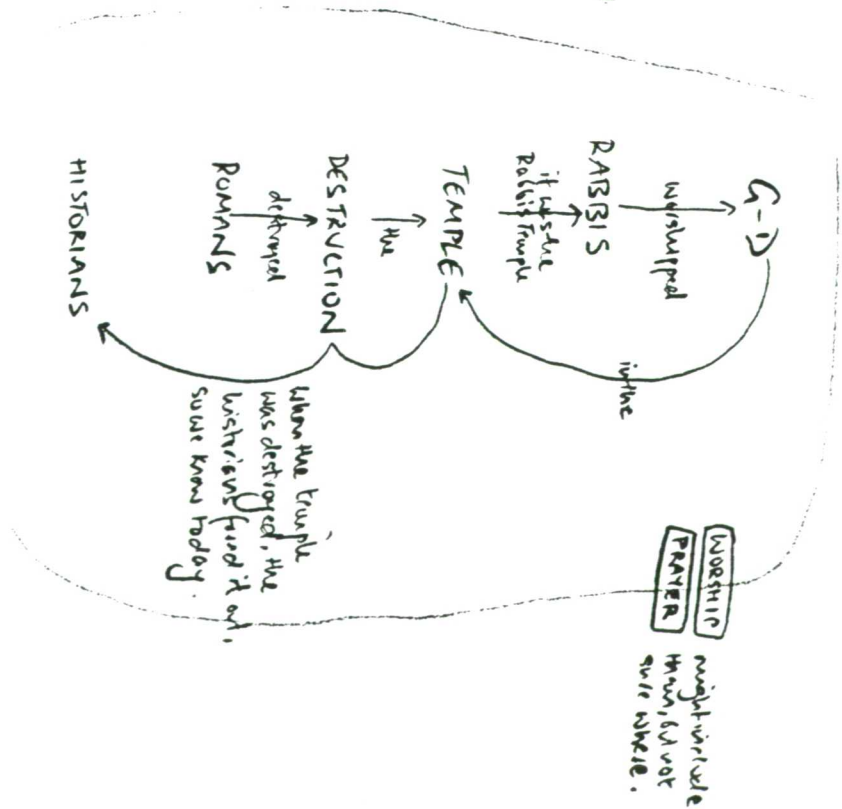 G-D
worshipped
RABBIS
it was the
Rabbis Temple
TEMPLE
in the
the
DESTRUCTION
destroyed
ROMANS
HISTORIANS
when the temple
was destroyed, the
historians found it out,
so we know today.
WORSHIP
PRAYER
might include
them, but not
sure where.